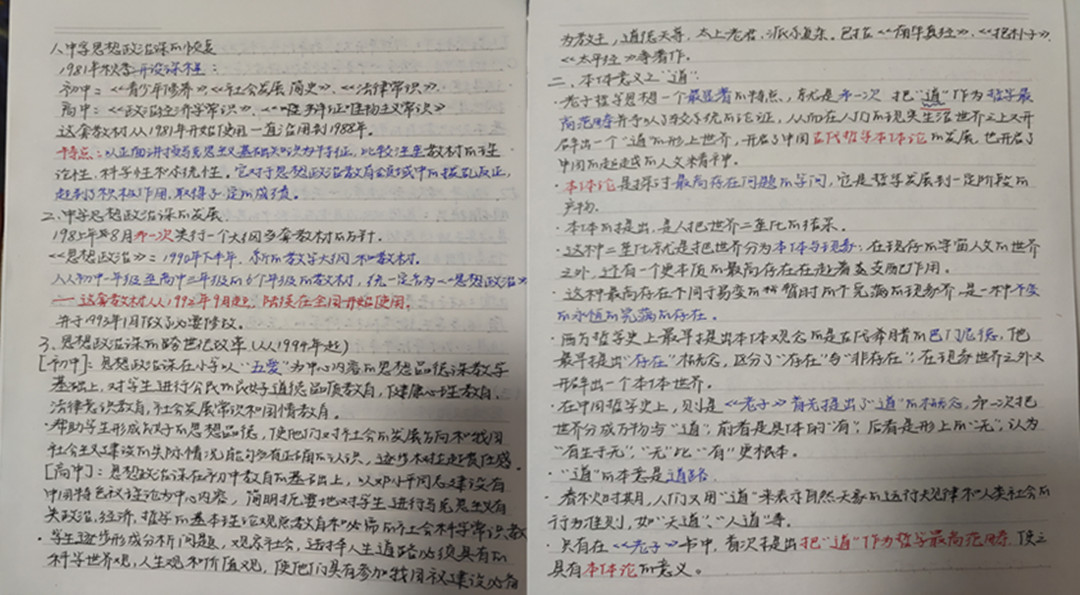 1、中学思想政治课的恢复
1981年秋季开设课程：
初中：《青少年修养》《社会发展简史》、《法律常识》
高中：《政治经济学常识》、《辩证唯物主义常识》
这套教材从1981年开始使用一直沿用到1988年。
特点：以正面讲授马克思主义基础知识为特征，比较注重教材的理
论性、科学性和系统性。它对于思想政治教育领域中的拨乱反正，
起到了积极作用，取得了一定的成绩。
二、中学思想政治课的发展
1985年8月第一次实行一个大纲多套教材的方针。
《思想政治》：1992年下半年，新的教学大纲和教材。
从初中一年级至高中三年级的6个年级的教材，统一定名为《思想政治》
—— 这套教材从1992年9月起，陆续在全国开始使用。
并于1993年1月做了必要修改。
3、思想政治课的跨世纪改革（从1994年起）
[初中]：思想政治课在小学以“五爱”为中心内容的思想品德课教学
基础上，对学生进行公民的良好道德品质教育，健康心理教育、
法律意识教育，社会发展常识和国情教育。
·帮助学生形成良好的思想品德，使他们对社会的发展方向和我国
社会主义建设的实际情况能够有正确的认识，逐步树立起责任感。
[高中]：思想政治课在初中教育的基础上，以邓小平同志建设有
中国特色社会主义理论为中心内容，简明扼要地对学生进行马克思主义有
关政治、经济、哲学的基本理论观点教育和必需的社会科学常识教
·学生逐步形成分析问题，观察社会，选择人生道路必须具有的
科学世界观，人生观和价值观，使他们具有参加我国建设必备
为教主，道德天尊，太上老君，派系复杂。包括《南华真经》、《抱朴子》、
《太平经》等著作。
二、本体意义上“道”：
·老子哲学思想一个最显著的特点，就是第一次 把“道”作为哲学最
高范畴并予以了较系统的论证，从而在人们的现实生活世界之上又开
辟出一个“道”的形上世界，开启了中国古代哲学本体论的发展，也开启了
中国的超越的人文精神。
·本体论是探讨最高存在问题的学问，它是哲学发展到一定阶段的
产物。
·本体的提出，是人把世界二重化的结果。
·这种二重化就是把世界分为本体与现象：在现存的宇宙人文的世界
之外，还有一个更本质的最高存在在起着支配作用。
·这种最高存在不同于易变的暂时的不完满的现象界，是一种不变
的永恒的完满的存在。
·西方哲学史上最早提出本体观念的是古代希腊的巴门尼德，他
最早提出“存在”的概念，区分了“存在”与“非存在”；在现象世界之外又
开辟出一个本体世界。
·在中国哲学史上，则是《老子》首先提出了“道”的概念，第一次把
世界分成万物与“道”，前者是具体的“有”，后者是形上的“无”，认为
“有生于无”，“无”比“有”更根本。
·“道”的本意是道路
·春秋时期，人们又用“道”来表示自然天象的运行规律和人类社会的
行为准则，如“天道”、“人道”等。
·只有在《老子》书中，首次提出把“道”作为哲学最高范畴，使之
具有本体论的意义。